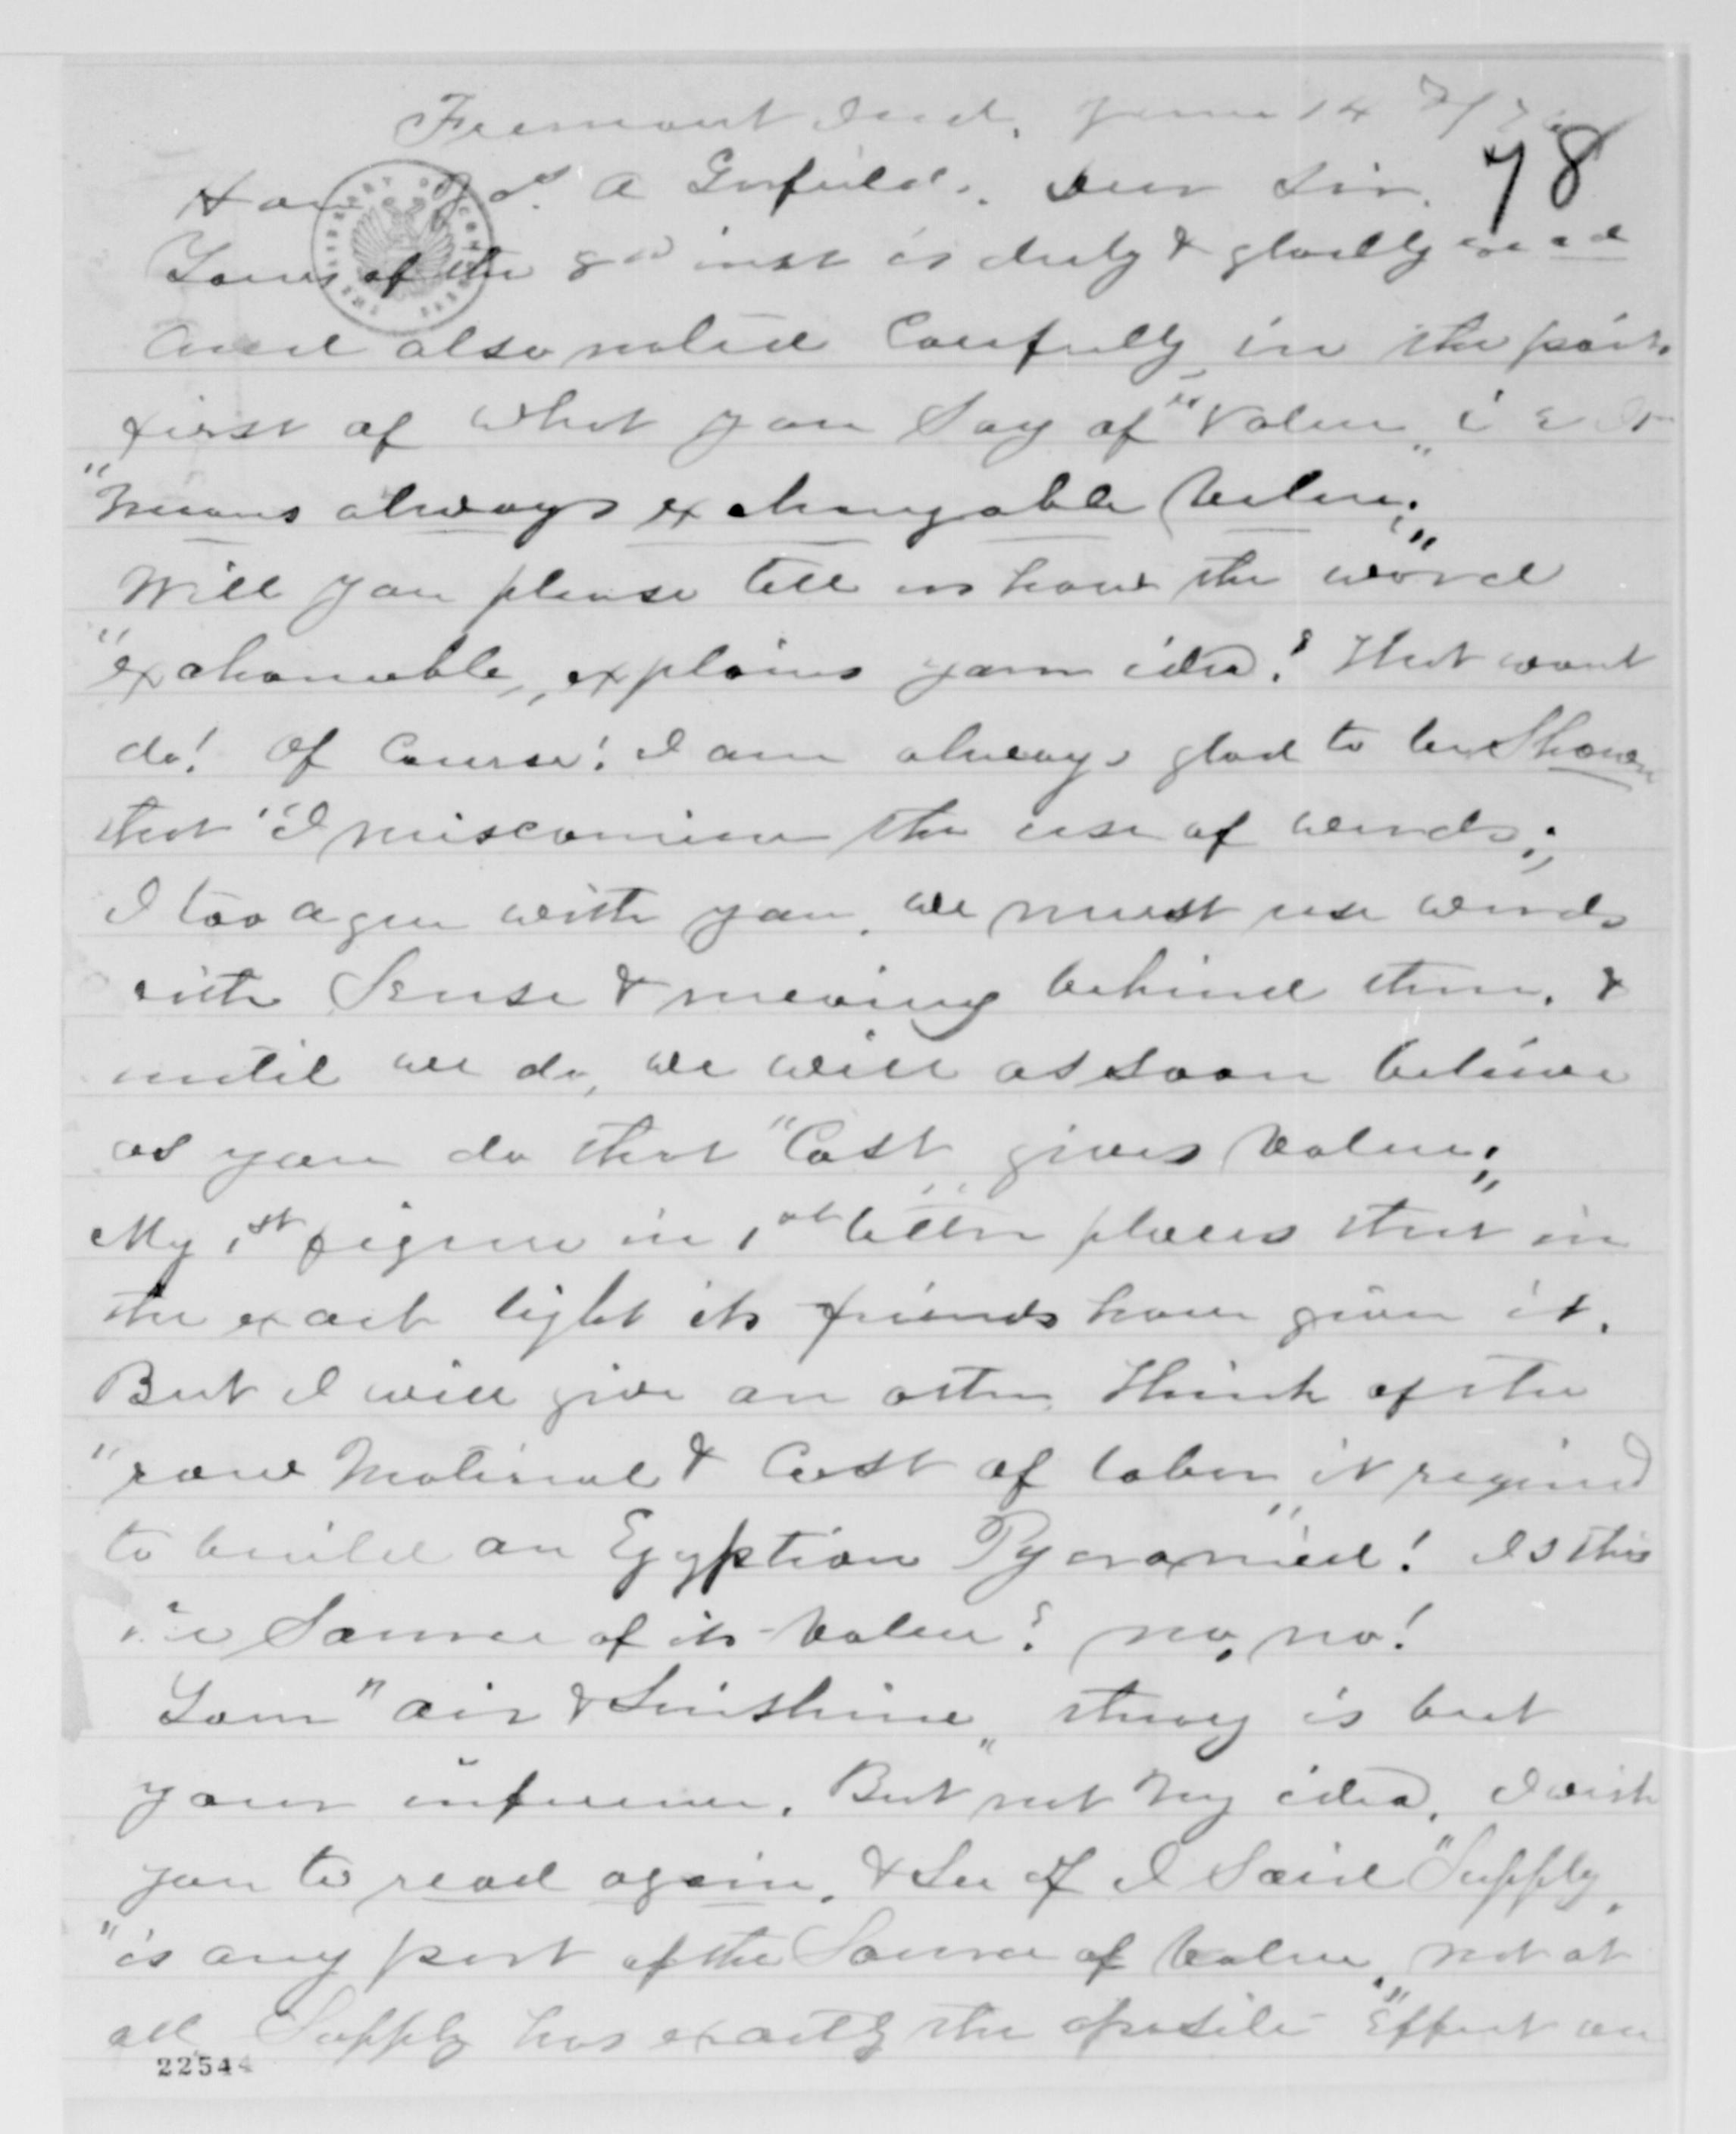 Fremont Ind. June 14th/78
78
Hon Jas. A Garfield. Dear Sir.
Yours of the 8th inst is duly & gladly read
and also noted carefully in the
first of what you say of "Value" i e It
"means always exchangable value."
Will you please tell us how the word
"exchanable" explains your idea? That wont
do! Of Course! I am always glad to be Shown
that "I misconceive the use of words";
I too agree with you. we must use words
with Sense & meaning behind them. &
until we do, we will as soon believe
as you do that "Cost gives Value";
My 1st figure in 1st letter places that in
the exact light its friends have given it.
But I will give an other Think of the
"raw Material & Cost of labor" it required
to build an Egyptian Pyramid! Is this
the Source of its Value? no, no!
Your "air & Sunshine" is but
your inference. But not my idea. I wish
you to read again. & See if I Said "Supply"
"is any part of the Source of Value" not at
all Supply has exactly the oposite Effect on
22544